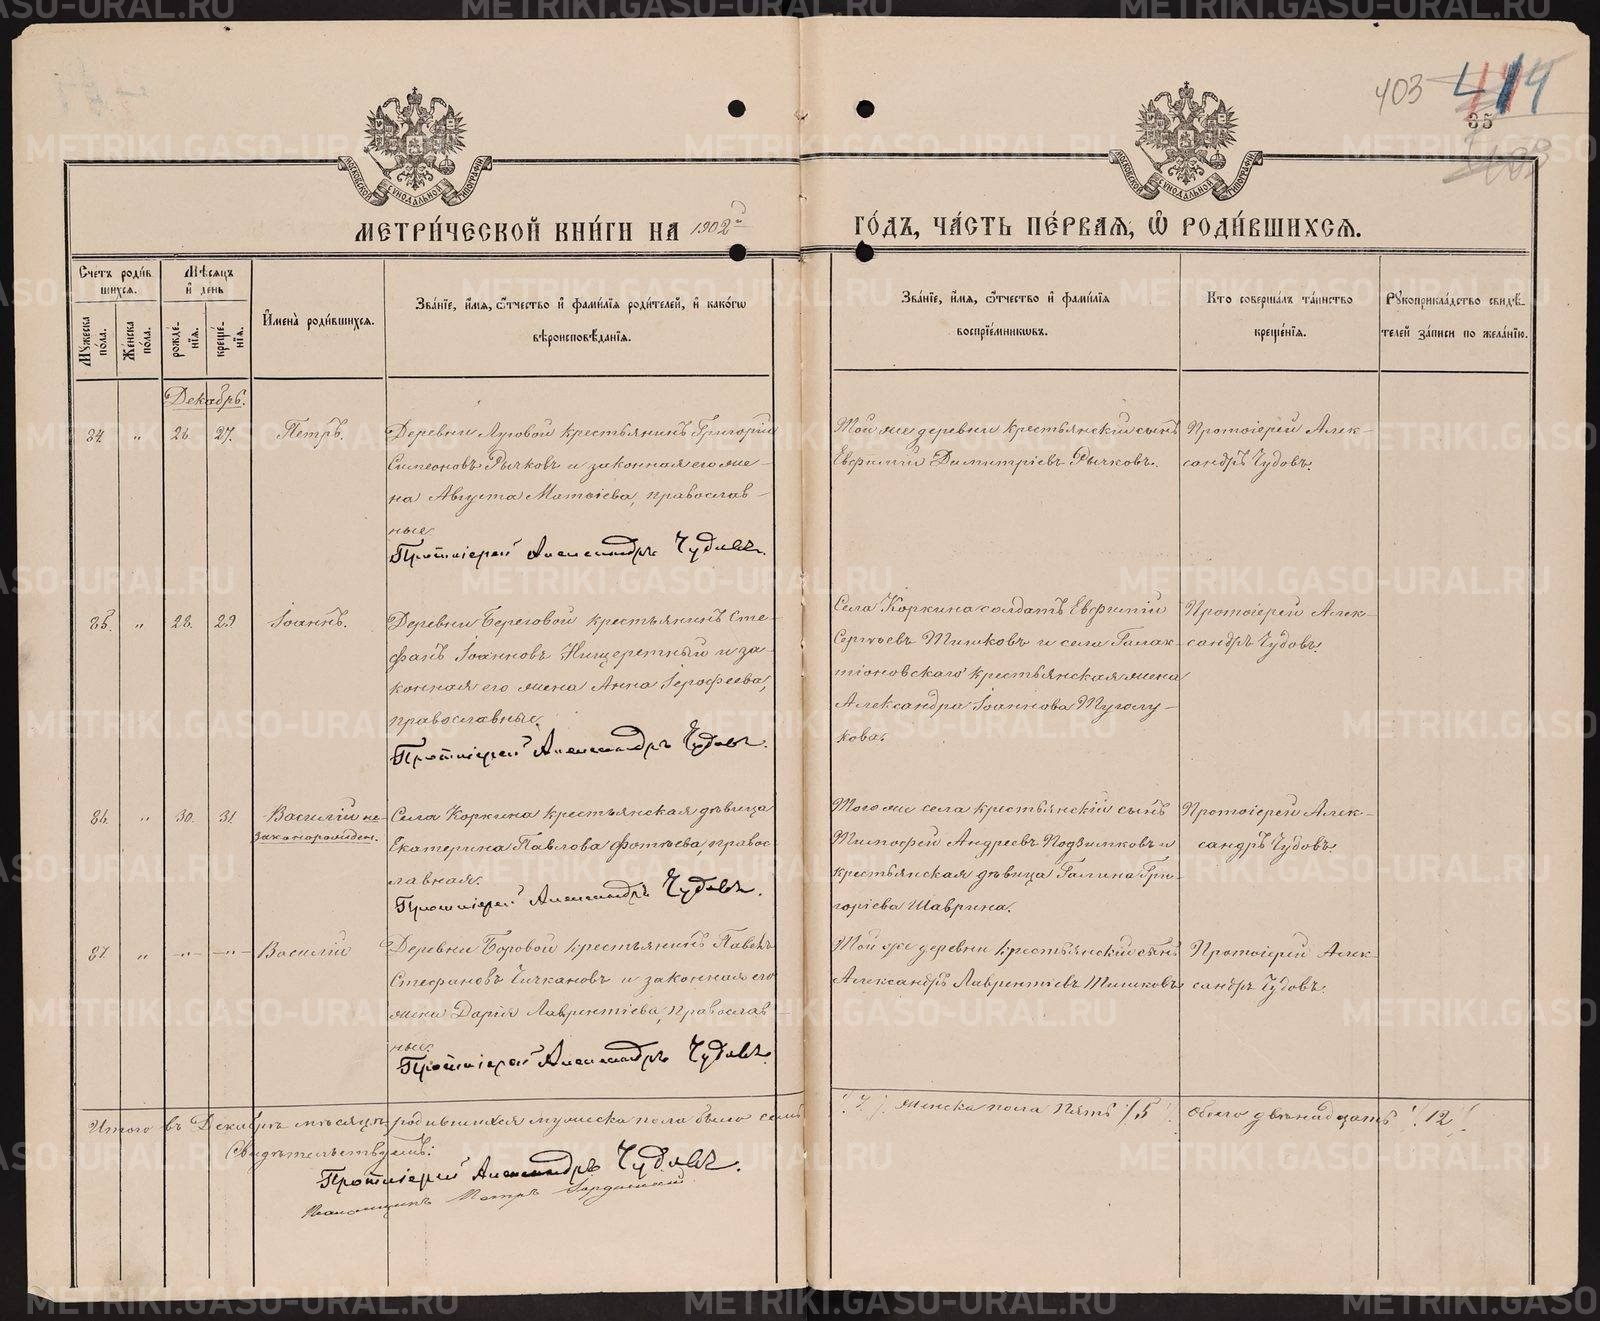 403 414
35
МОСКОВСКОЙ СѴНОДАЛЬНОЙ ТИПОГРАФІИ
МОСКОВСКОЙ СѴНОДАЛЬНОЙ ТИПОГРАФІИ
МЕТРИ́ЧЕСКОЙ КНИ́ГИ НА 1902й
ГО́ДЪ, ЧА́СТЬ ПЕ́РВАѦ, Ѽ РОДИ́ВШИХСѦ.
Счетъ роди́вшихсѧ.
Мѣ́сѧцъ и҆ день
И҆мена̀ роди́вшихсѧ.
Зва́нїе, и҆́мѧ, ѻ҆́тчество и҆ фами́лїѧ роди́телей, и҆ како́гѡ
вѣроисповѣ́данїѧ.
Зва́нїе, и҆́мѧ, ѻ҆́тчество и҆ фами́лїѧ
воспрїе́мникѡвъ.
Кто совершалъ та́инство
креще́нїѧ.
Рꙋкоприкла́дство свидѣ́-
телей за́писи по жела́нїю.
Мꙋжеска пола.
Же́нска по́ла.
рожде́-нїѧ.
креще́-нїѧ.
Декабрь.
84. " 26. 27. Петръ.
Деревни Луговой крестьянинъ Григорій
Симеоновъ Рычковъ и законная его же-
на Августа Матѳіева, православ-
ные.
Протоіерей Александръ Чудовъ.
Той же деревни крестьянскій сынъ
Евфимій Димитріевъ Рычковъ.
Протоіерей Алек-
сандръ Чудовъ.
85. " 28. 29. Іоаннъ.
Деревни Береговой крестьянинъ Сте-
фанъ Іоанновъ Нищеретный и за-
конная его жена Анна Іерофеева,
православные.
Протоіерей Александръ Чудовъ.
Села Коркина солдатъ Евфимій
Сергѣевъ Тишковъ и села Галак-
тіоновскаго крестьянская жена
Александра Іоаннова Туголу-
кова.
Протоіерей Алек-
сандръ Чудовъ.
86. " 30. 31. Василій не-
законорожден.
Села Коркина крестьянская дѣвица
Екатерина Павлова Фотѣева, правос-
лавная.
Протоіерей Александръ Чудовъ.
Того же села крестьянскій сынъ
Тимофей Андреевъ Подзимковъ и
крестьянская дѣвица Галина Гри-
горіева Шаврина.
Протоіерей Алек-
сандръ Чудовъ.
87. " -"- -"- Василій
Деревни Боровой крестьянинъ Павелъ
Стефановъ Чичкановъ и законная его
жена Дарія Лаврентіева, православ-
ные.
Протоіерей Александръ Чудовъ.
Той же деревни крестьянскій сынъ
Александръ Лаврентіевъ Тишковъ
Протоіерей Алек-
сандръ Чудовъ.
Итого въ Декабрѣ мѣсяцѣ родившихся мужеска пола было семь
/7/ женска пола пять /5/ обоего двѣнадцать /12/
Свидѣтельствуемъ:
Протоіерей Александръ Чудовъ.
Псаломщикъ Петръ